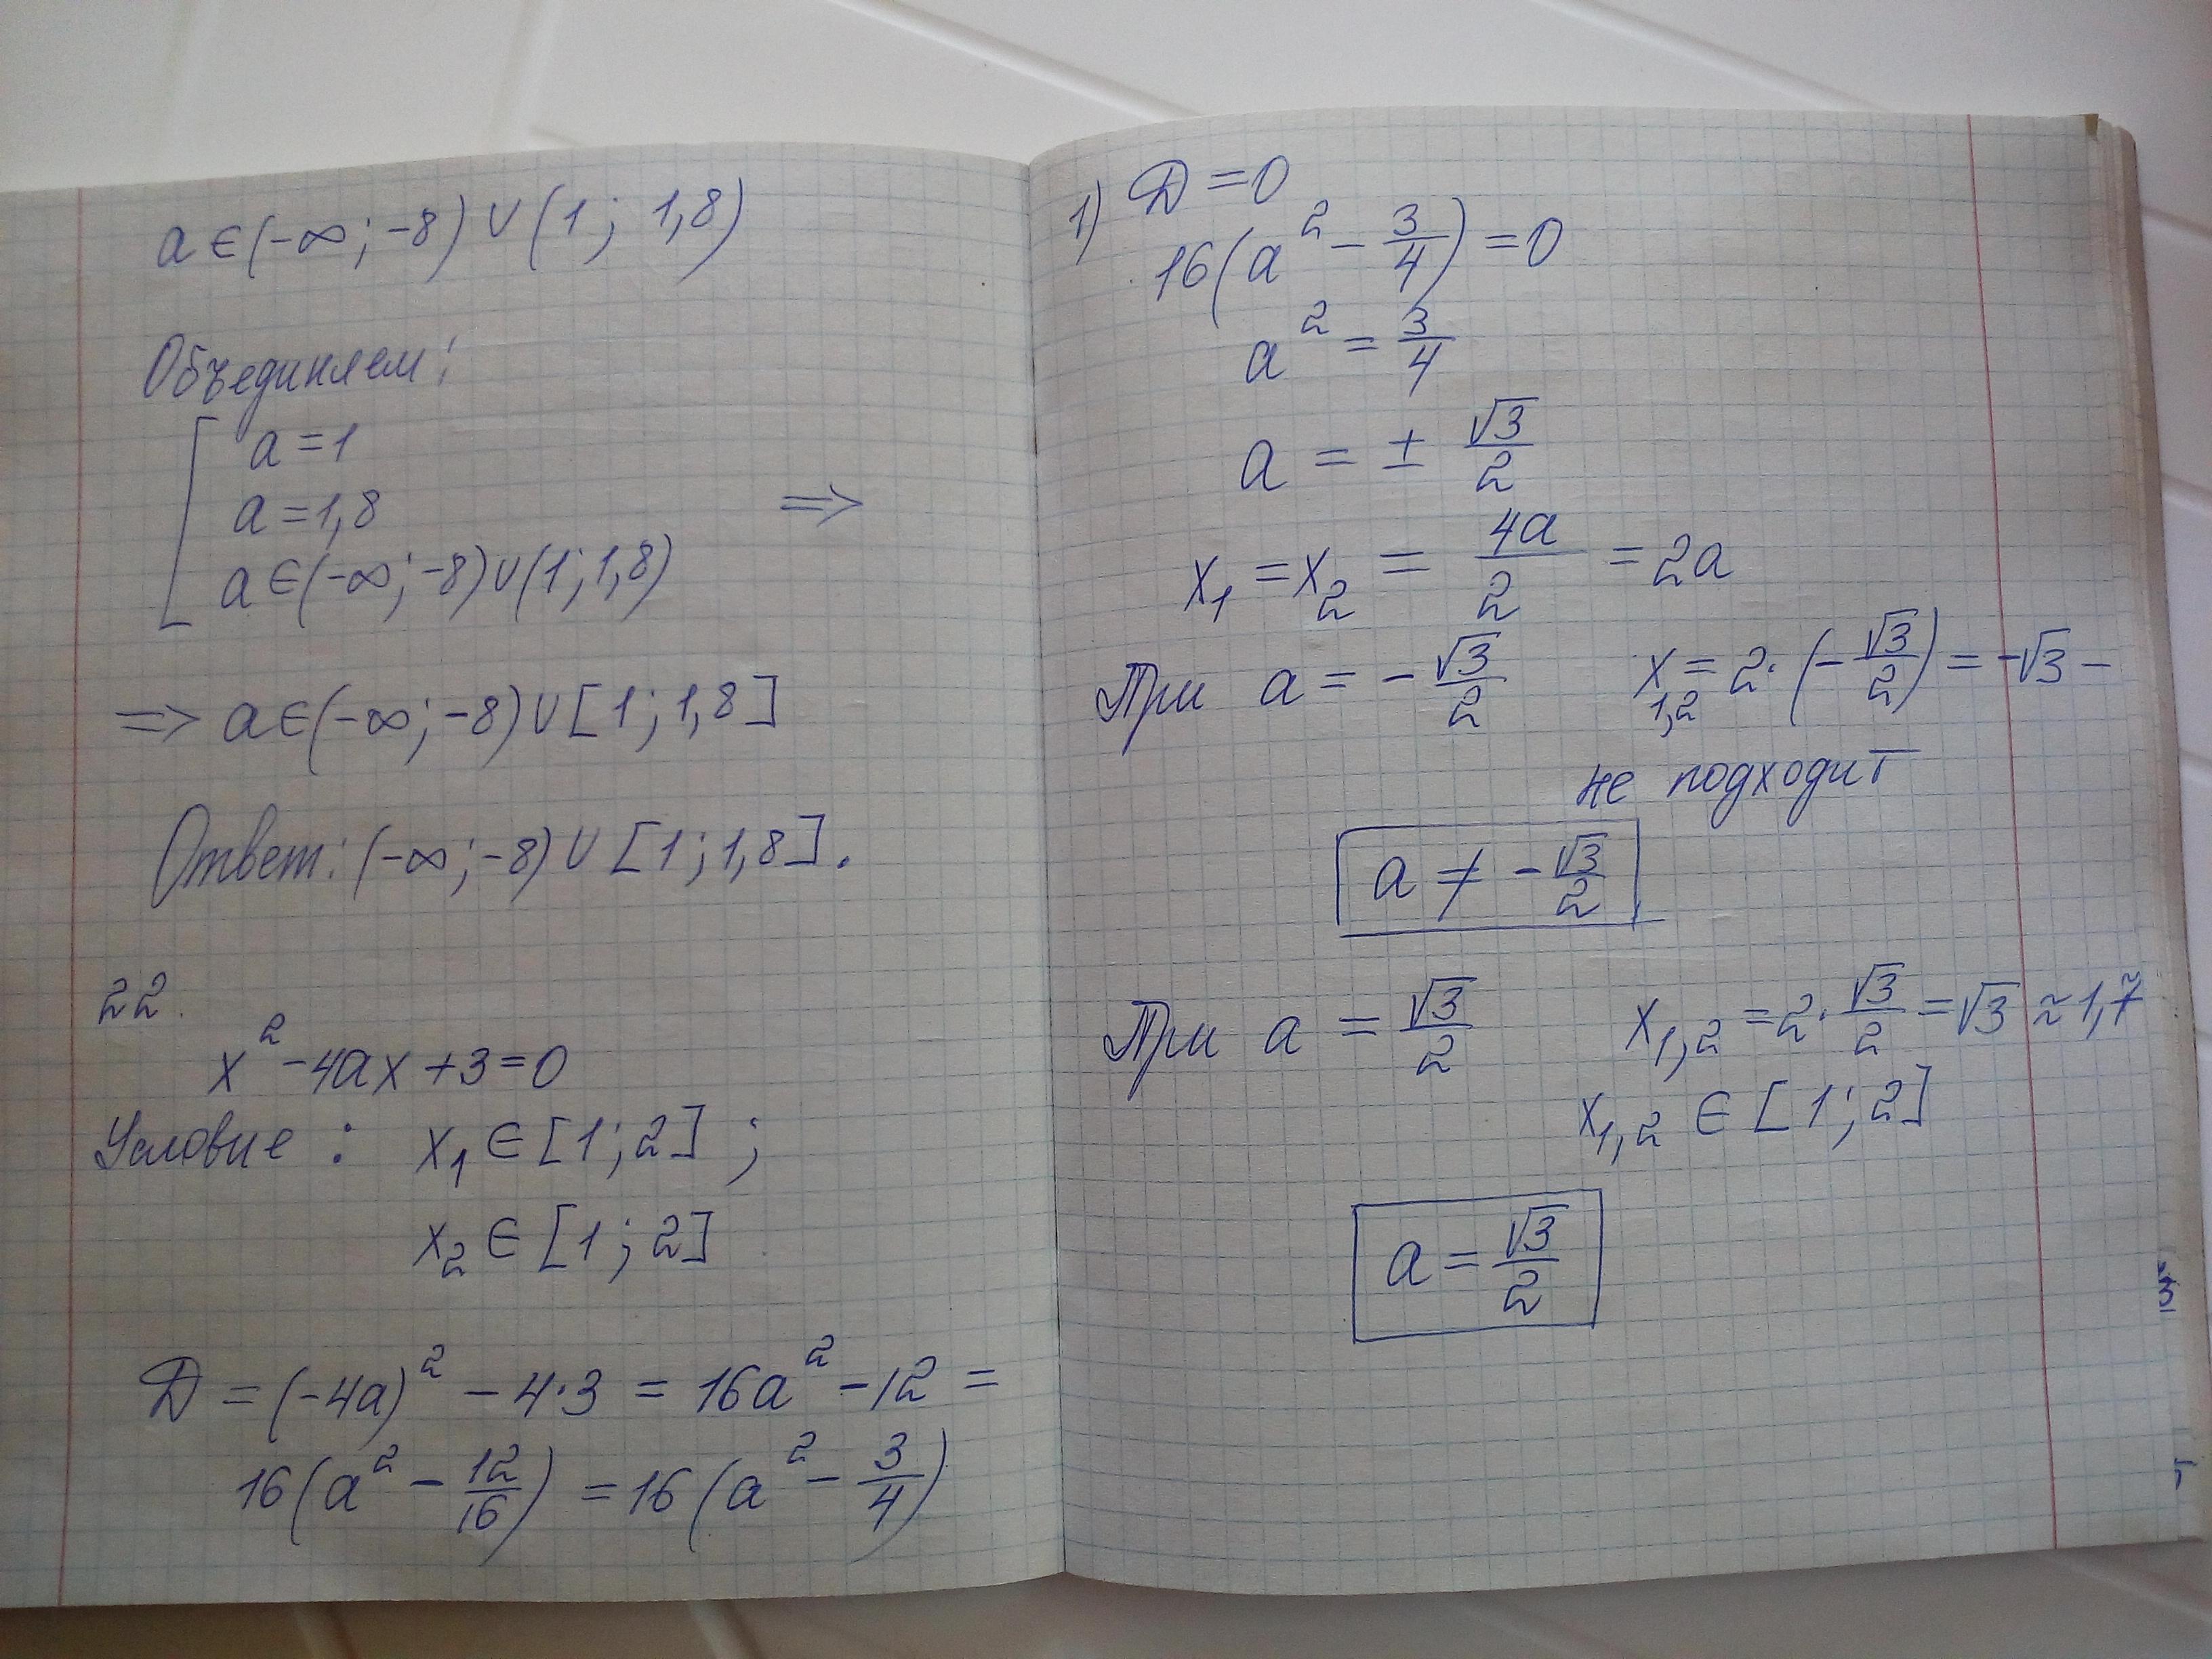 a ∈ (-∞; -8) ∪ (1; 1,8)
Объединяем:
a = 1
a = 1,8 ⇒
a ∈ (-∞; -8) ∪ (1; 1,8)
⇒ a ∈ (-∞; -8) ∪ [1; 1,8]
Ответ: (-∞; -8) ∪ [1; 1,8].
22.
x² - 4ax + 3 = 0
Условие: x₁ ∈ [1; 2];
x₂ ∈ [1; 2]
D = (-4a)² - 4·3 = 16a² - 12 =
16(a² - 12/16) = 16(a² - 3/4)
1) D = 0
16(a² - 3/4) = 0
a² = 3/4
a = ± √3/2
x₁ = x₂ = 4a/2 = 2a
При a = - √3/2 x₁,₂ = 2·(- √3/2) = -√3 -
не подходит
a ≠ - √3/2
При a = √3/2 x₁,₂ = 2· √3/2 = √3 ≈ 1,7
x₁,₂ ∈ [1; 2]
a = √3/2